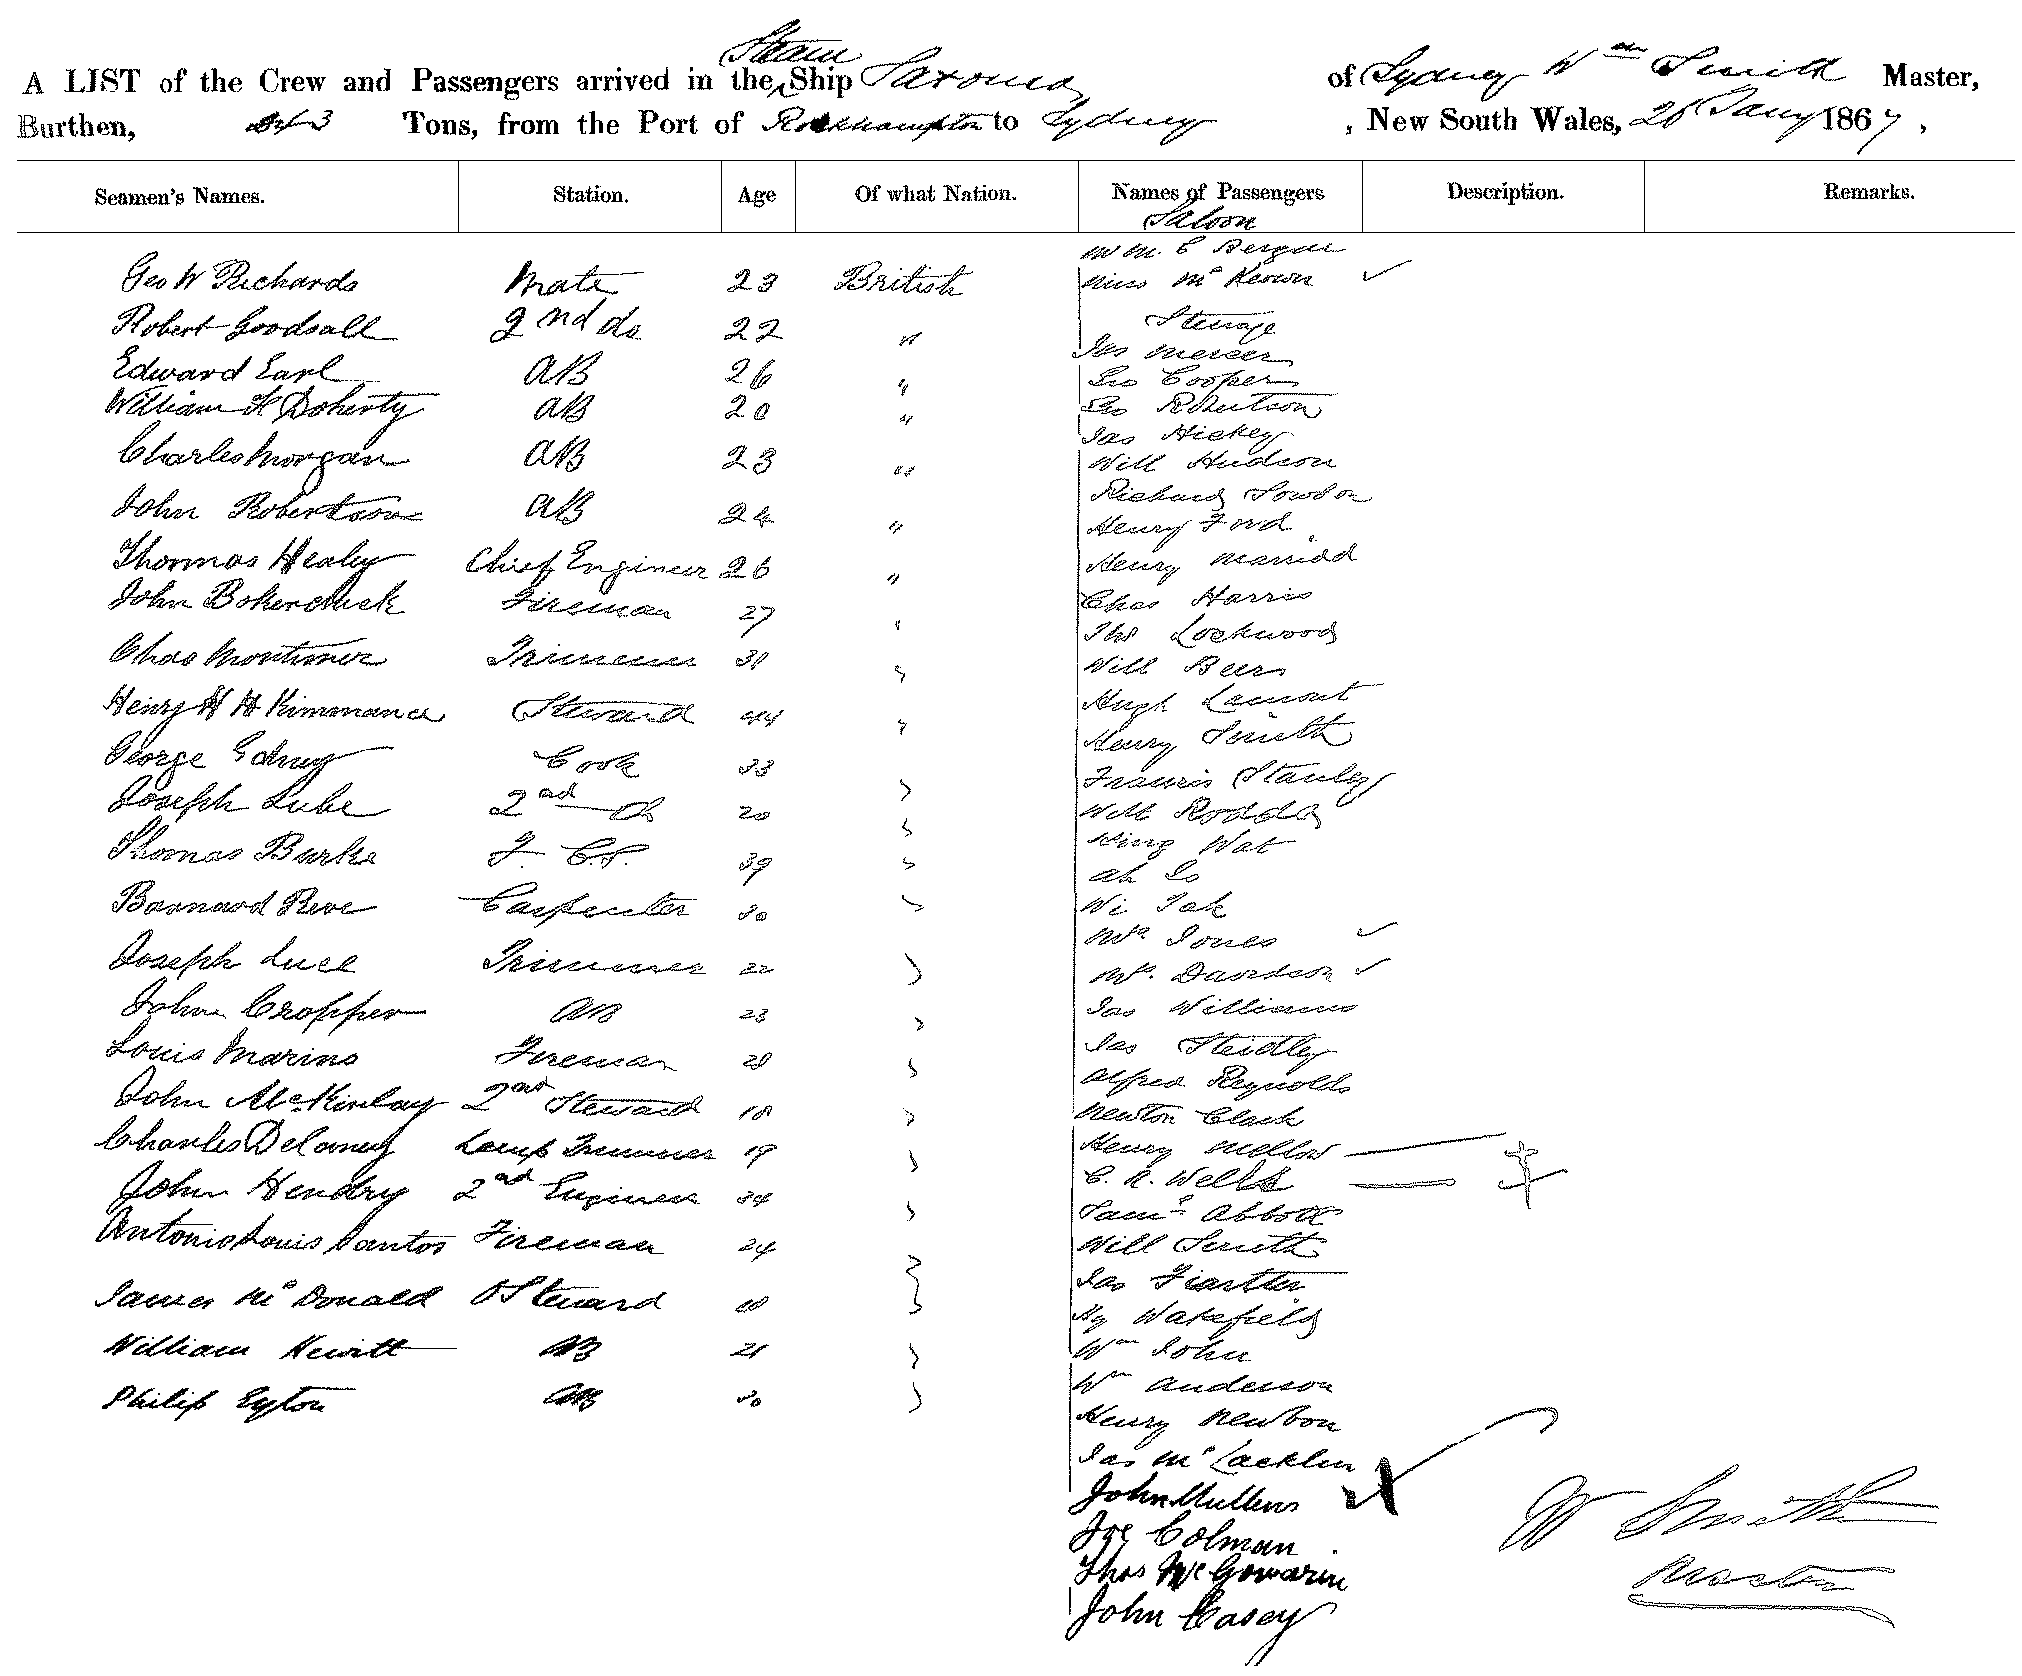 Steam
A LIST of the Crew and Passengers arrived in the Ship Saxonia of Sydney Wm Smith Master,
Burthen, Tons, from the Port of Rockhampton to Sydney , New South Wales, 26 Jany 1867 ,
Seamen's Names. Station. Age Of what Nation. Names of Passengers Description. Remarks.
Saloon
Geo W Richards Mate 23 British
Miss McKeown
Robert Goodsall 2nd do 22 "
Steerage
Jas Mercer
Edward Earl AB 26 "
Geo Cooper
William H Doherty AB 20 "
Geo Robertson
Jas Hickey
Charles Morgan AB 23 "
Will Hudson
Richard Sowdon
John Robertson AB 24 "
Henry Ford
Thomas Healey Chief Engineer 26 "
Henry
John Fireman 27 "
Chas Harris
Thos Lockwood
Chas Mortimer Trimmer 31 "
Will Beers
Henry H H Kimmance Steward 44 "
Hugh Lamont
Henry Smith
George Edney Cook 33
Francis Stanley
Joseph Lube 2nd do 20
Will Rodda
Thomas Burke F. C.S. 39
King Wat
Ah So
Barnard Reve Carpenter 30
Wi Tak
Mrs Jones
Joseph Luce Trimmer 22
Mrs. Davidson
John Cropper AB 23
Jas Williams
Louis Marino Fireman 28
Jas Steidley
Alfred Reynolds
John McKinlay 2nd Steward 18
Newton Clark
Charles Delaney Lamp Trimmer 19
Henry Mellow
John Hendry 2nd Engineer 34
C. R. Wells
Saml Abbott
Antonio Louis Santos Fireman 24
Will Smith
Jas
James McDonald Steward 18
Hy Wakefield
William Hewitt AB 21
Wm John
Philip Eyton AB 30
Wm Anderson
Henry Newbon
Jas McLacklin
John Mullens
Joe Colman
Thos McGowarin
John Casey
W Smith
Master